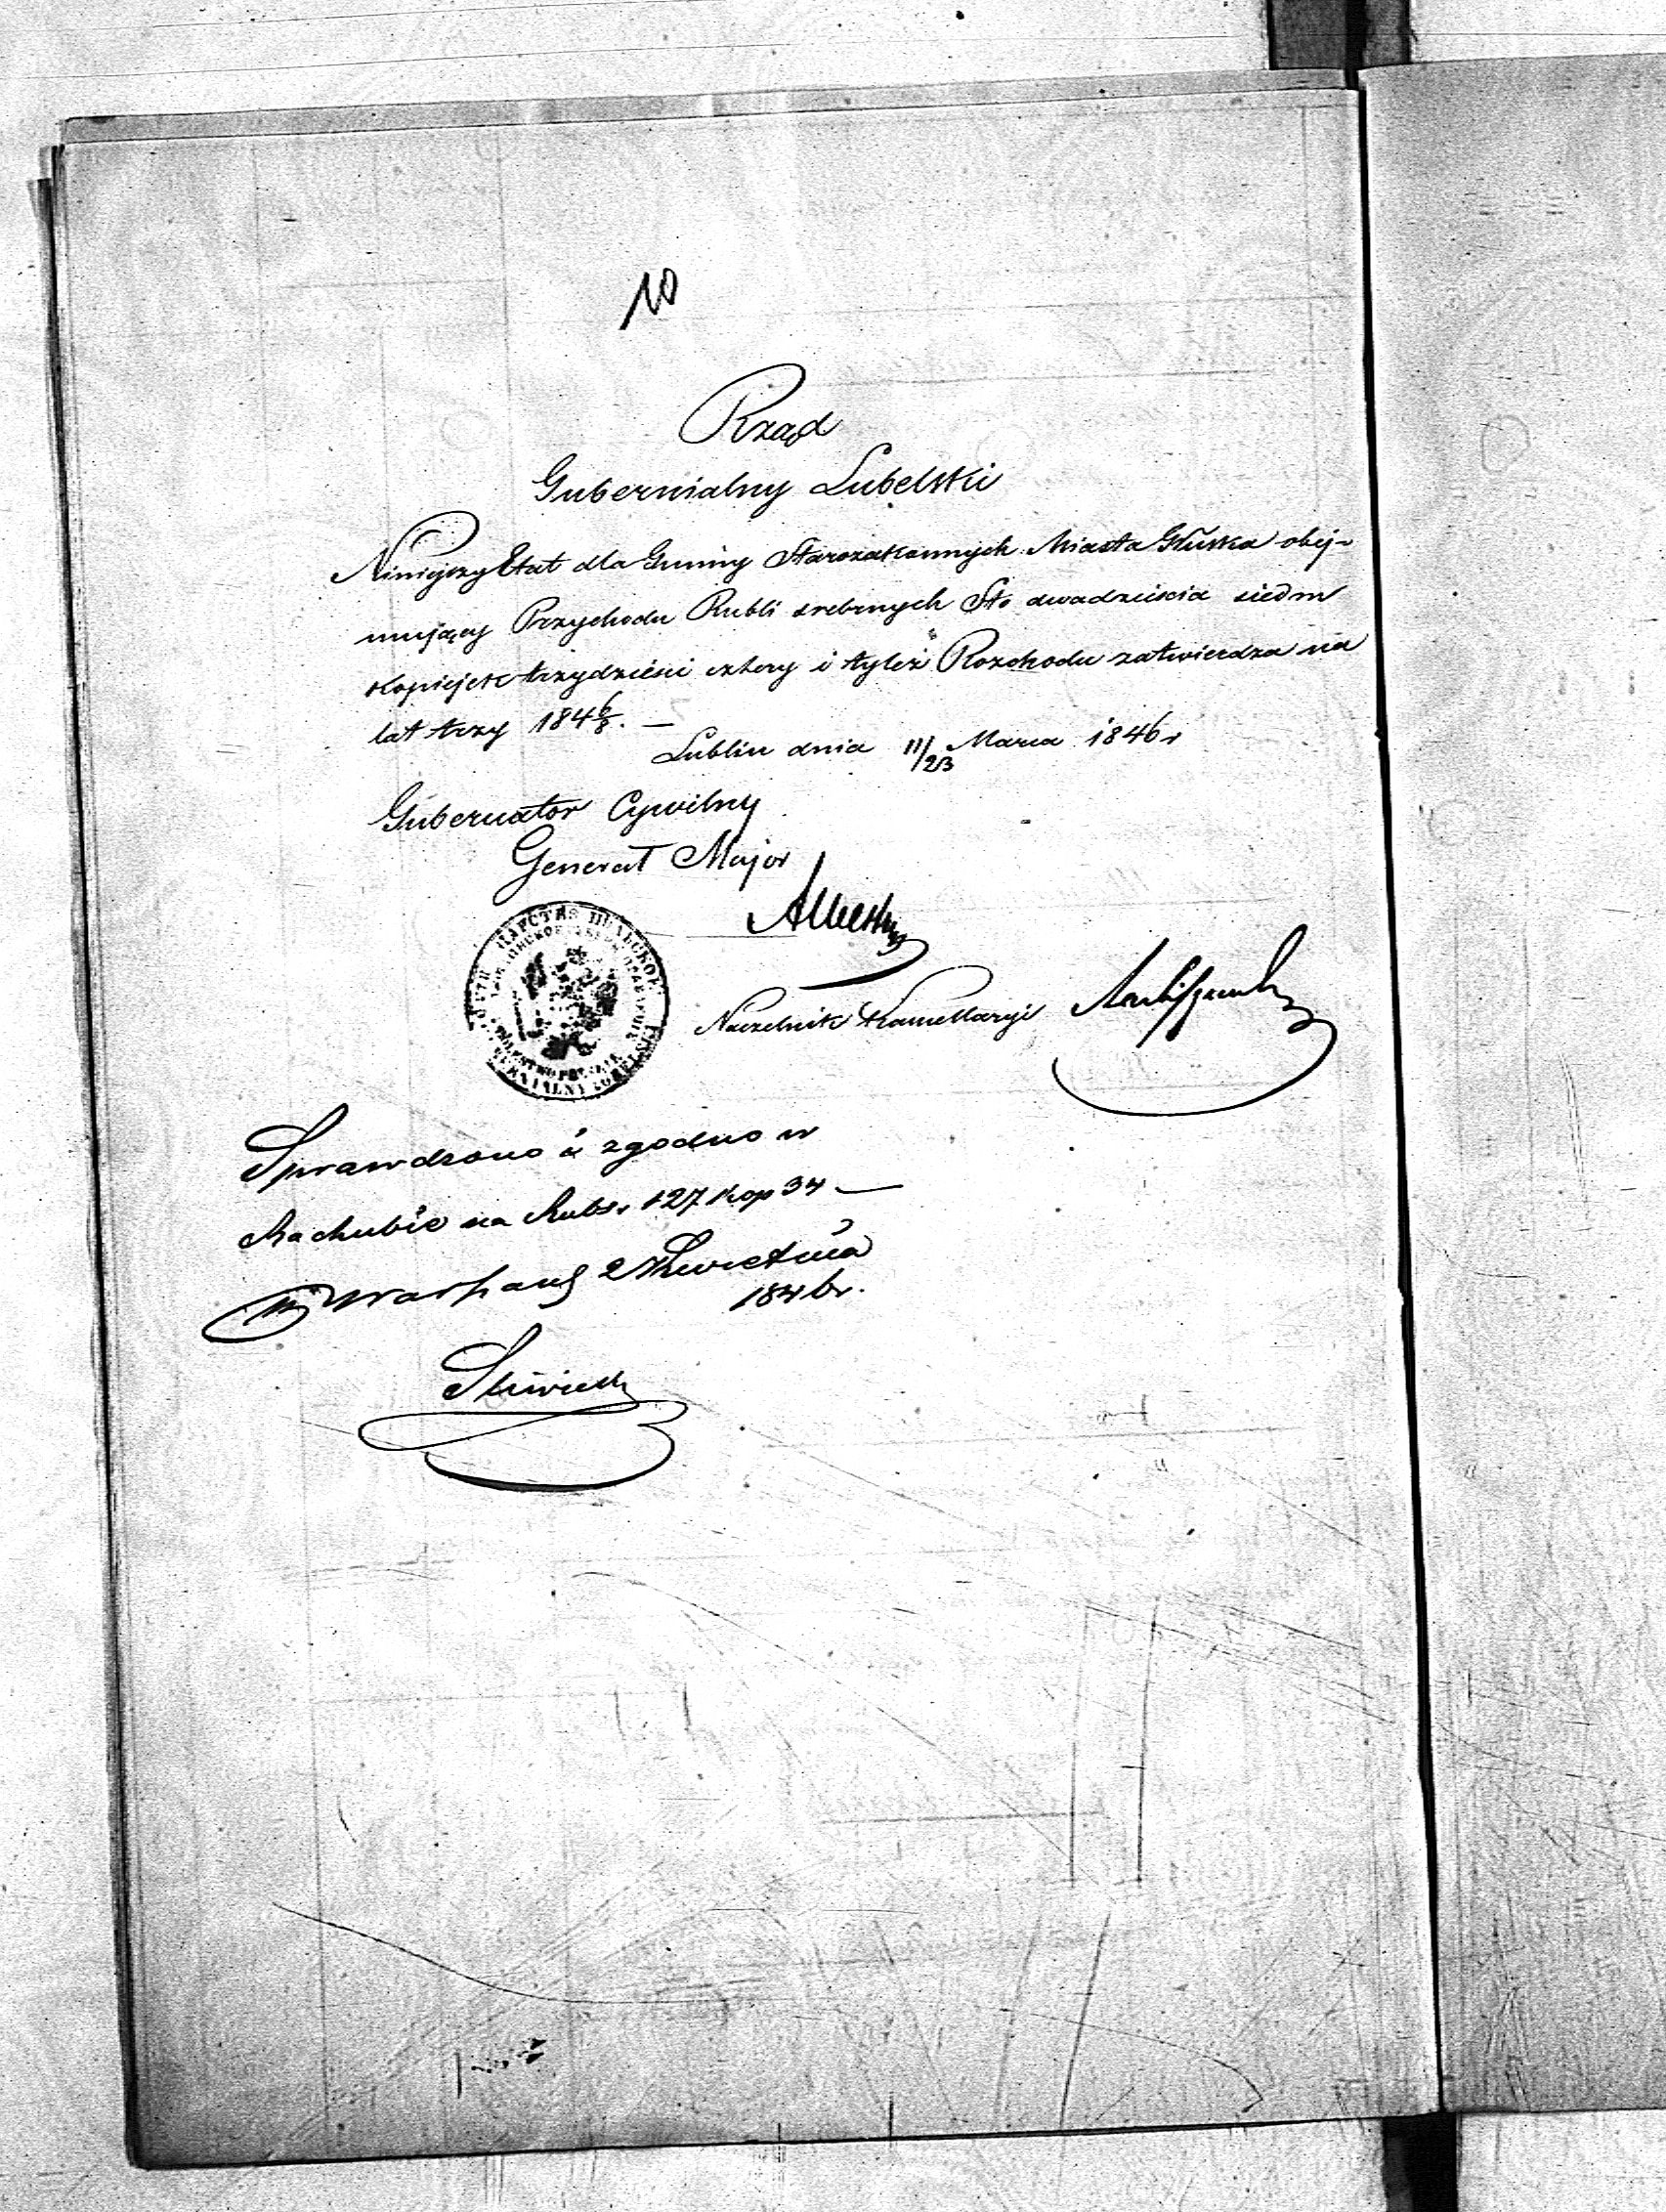 10
Rząd
Gubernialny Lubelski
Niniejszy Etat dla Gminy Starozakonnych Miasta Głuska obej-
mujący Przychodu Rubli srebrnych Sto dwadzieścia siedm
Kopiejek trzydzieści cztery i tyleż Rozchodu zatwierdza na
lat trzy 184 6/8. —
Lublin dnia 11/23 Marca 1846 r
Gubernator Cywilny
Generał Major
Naczelnik Kancellaryi
Sprawdzono i zgodno w
Rachubie na Rubsr 127 kop 34 —
w Warszawie 2 Kwietnia
1846 r.